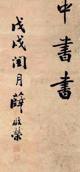 中書書
戊戌閏月薛雁榮